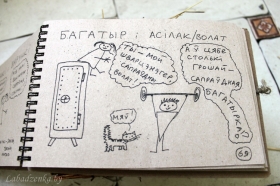 БАГАТЫР : АСІЛАК/ВОЛАТ
ТЫ – МОЙ
ШВАРЦЭНЭГЕР,
САПРАЎДНЫ
ВОЛАТ
А Ў ЦЯБЕ
СТОЛЬКІ
ГРОШАЙ...
САПРАЎДНАЯ
БАГАТЫРКА
МЯЎ
69
Labadzenka.by